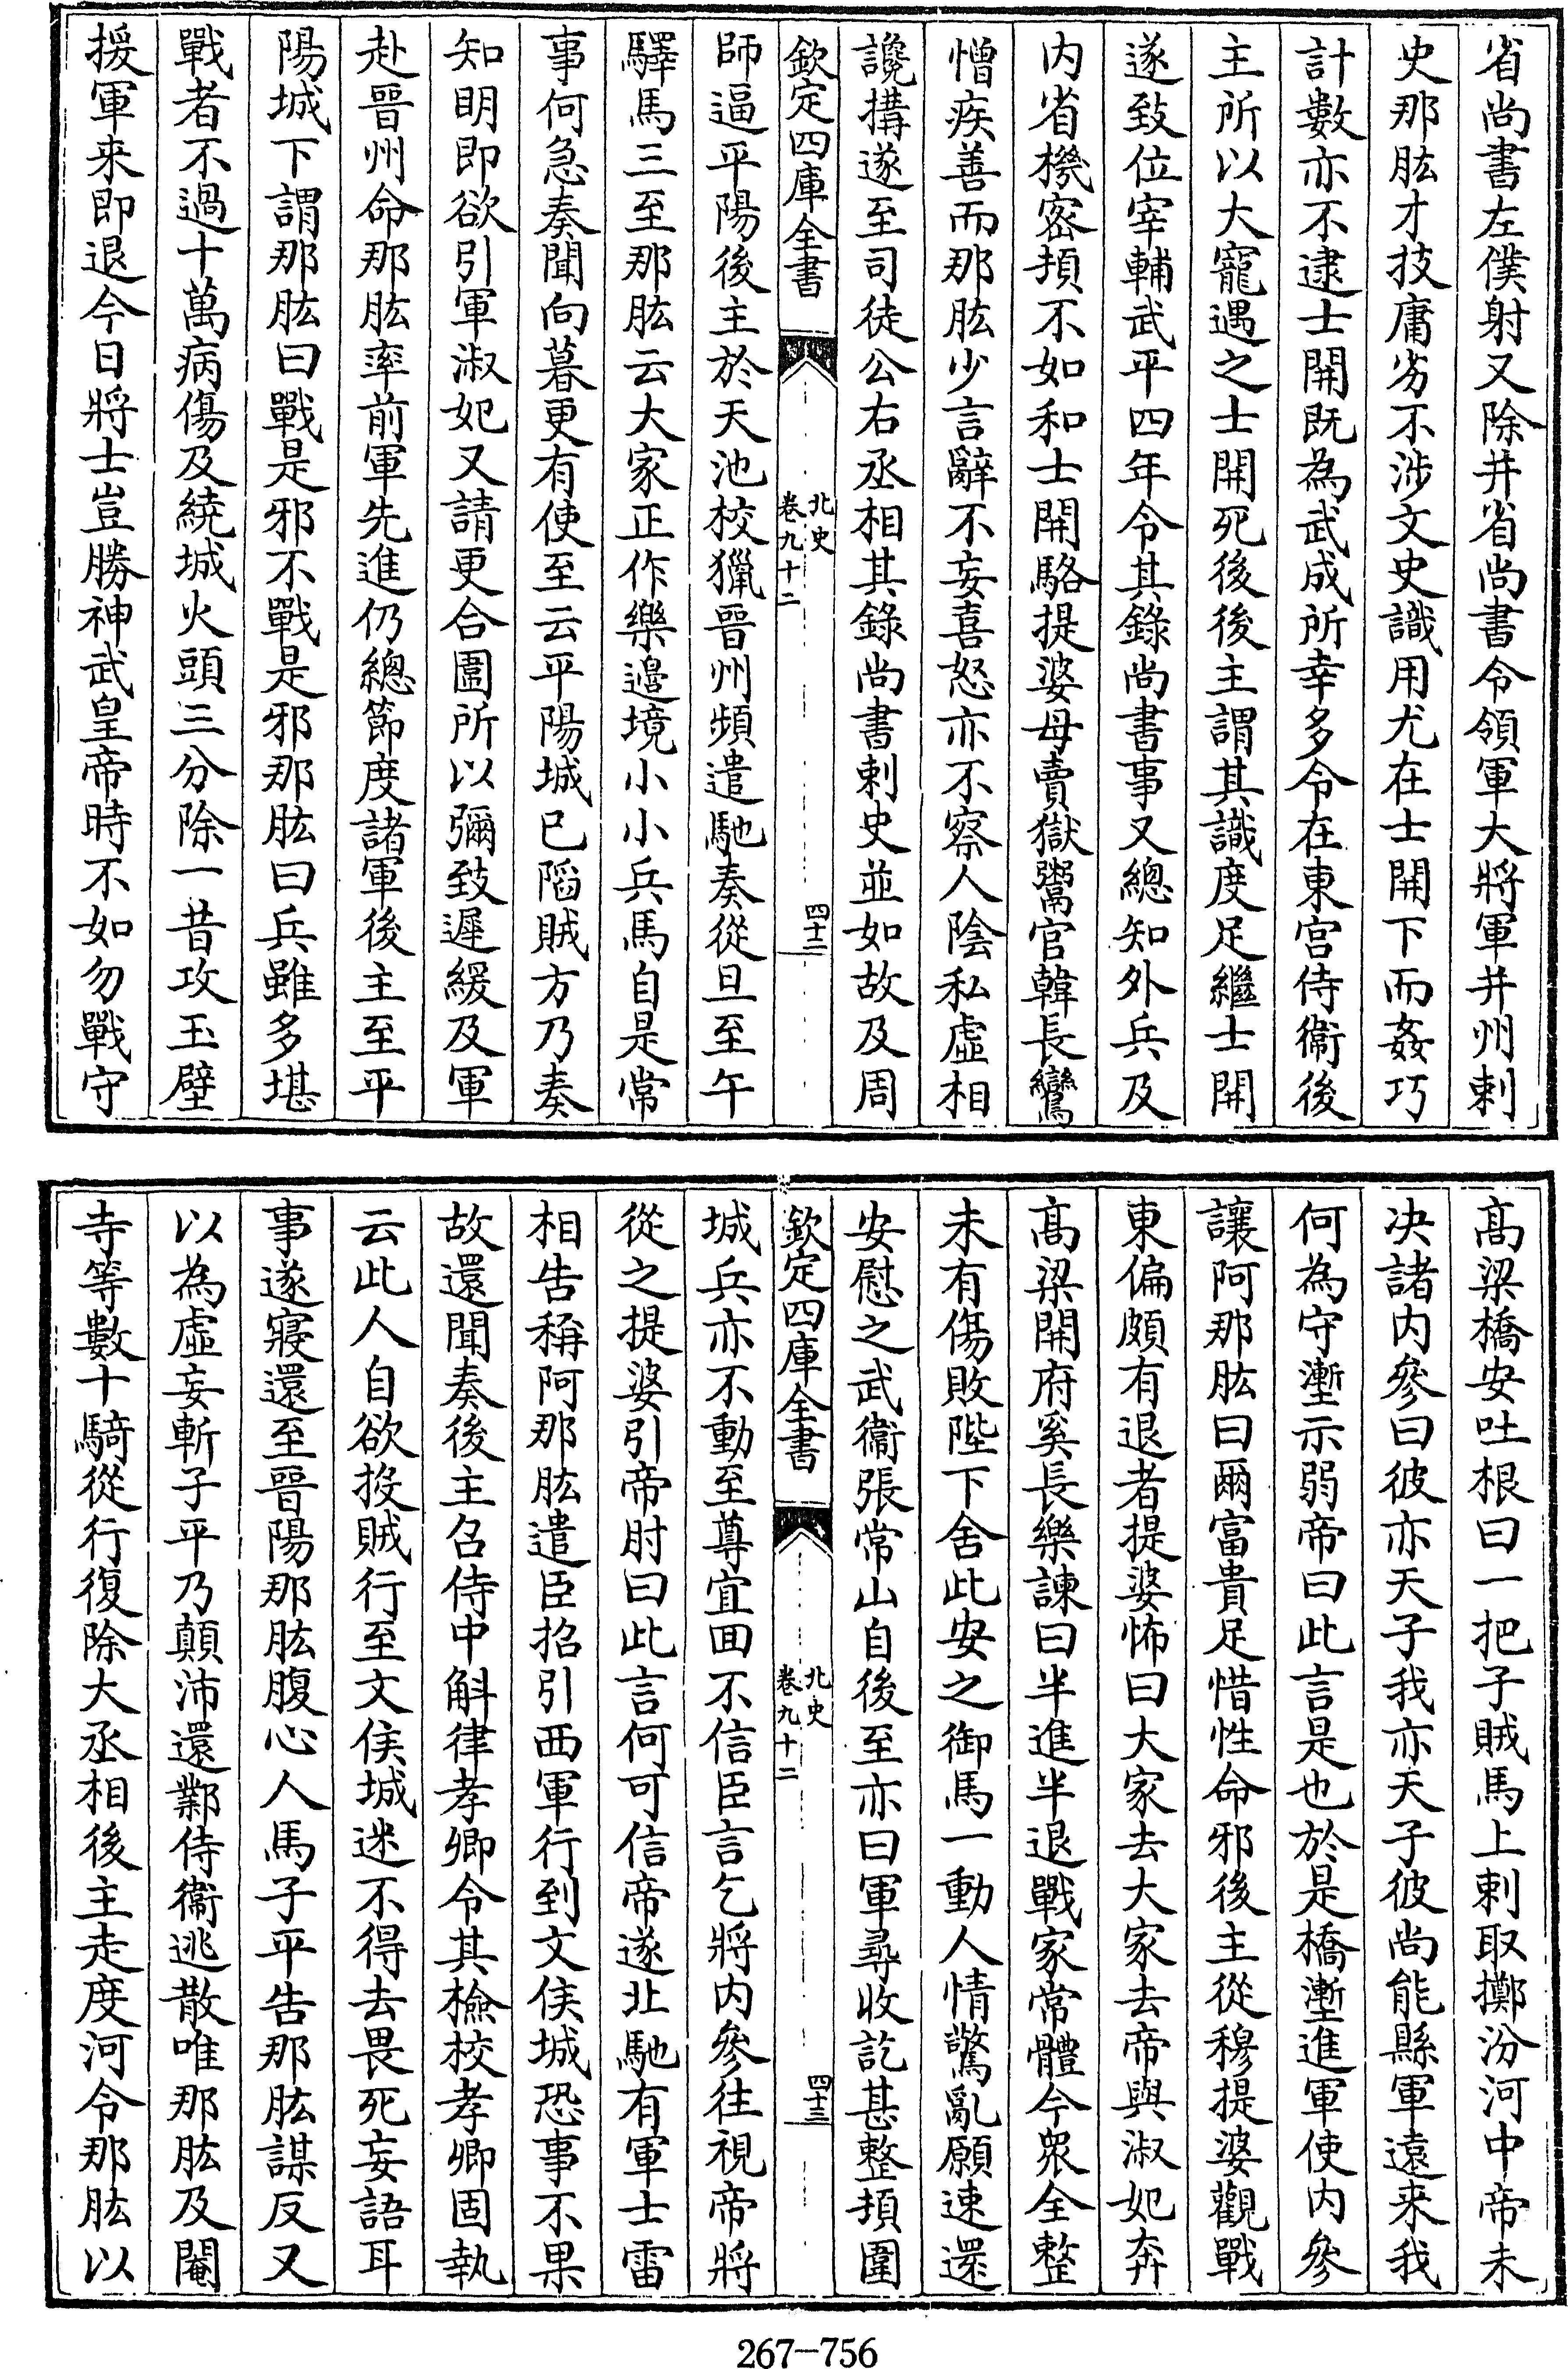 省尚書左僕射又除并省尚書令領軍大將軍并州刺
史那肱才技庸劣不涉文史識用尤在士開下而姦巧
計數亦不逮士開既為武成所幸多令在東宫侍衞後
主所以大寵遇之士開死後後主謂其識度足繼士開
遂致位宰輔武平四年令其錄尚書事又總知外兵及
内省機密損不如和士開駱提婆母賣獄鬻官韓長鸞
憎疾善而那肱少言辭不妄喜怒亦不察人陰私虛相
讒搆遂至司徒公右丞相其錄尚書刺史並如故及周
欽定四庫全書
北史
卷九十二
四十二
師逼平陽後主於天池校獵晉州頻遣馳奏從旦至午
驛馬三至那肱云大家正作樂邉境小小兵馬自是常
事何急奏聞向暮更有使至云平陽城已䧟賊方乃奏
知明即欲引軍淑妃又請更合圍所以彌致遲緩及軍
赴晉州命那肱率前軍先進仍總節度諸軍後主至平
陽城下謂那肱曰戰是邪不戰是邪那肱曰兵雖多堪
戰者不過十萬病傷及繞城火頭三分除一昔攻玉壁
援軍来即退今日將士豈勝神武皇帝時不如勿戰守
髙梁橋安吐根曰一把子賊馬上刺取擲汾河中帝未
决諸内參曰彼亦天子我亦天子彼尚能縣軍遠来我
何為守塹示弱帝曰此言是也於是橋塹進軍使内參
讓阿那肱曰爾富貴足惜性命邪後主從穆提婆觀戰
東偏頗有退者提婆怖曰大家去大家去帝與淑妃奔
髙梁開府奚長樂諫曰半進半退戰家常體今衆全整
未有傷敗陛下舍此安之御馬一動人情驚亂願速還
安慰之武衞張常山自後至亦曰軍尋收訖甚整損圍
欽定四庫全書
北史
卷九十二
四十三
城兵亦不動至尊宜回不信臣言乞將内參徃視帝將
從之提婆引帝肘曰此言何可信帝遂北馳有軍士雷
相告稱阿那肱遣臣招引西軍行到文侯城恐事不果
故還聞奏後主召侍中斛律孝卿令其檢校孝卿固執
云此人自欲投賊行至文侯城迷不得去畏死妄語耳
事遂寢還至晉陽那肱腹心人馬子平告那肱謀反又
以為虛妄斬子平乃顛沛還鄴侍衞逃散唯那肱及閹
寺等數十騎從行復除大丞相後主走度河令那肱以
267-756